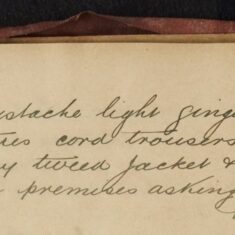 ustache light ging
cord trousers
y tweed Jacket &
premises asking